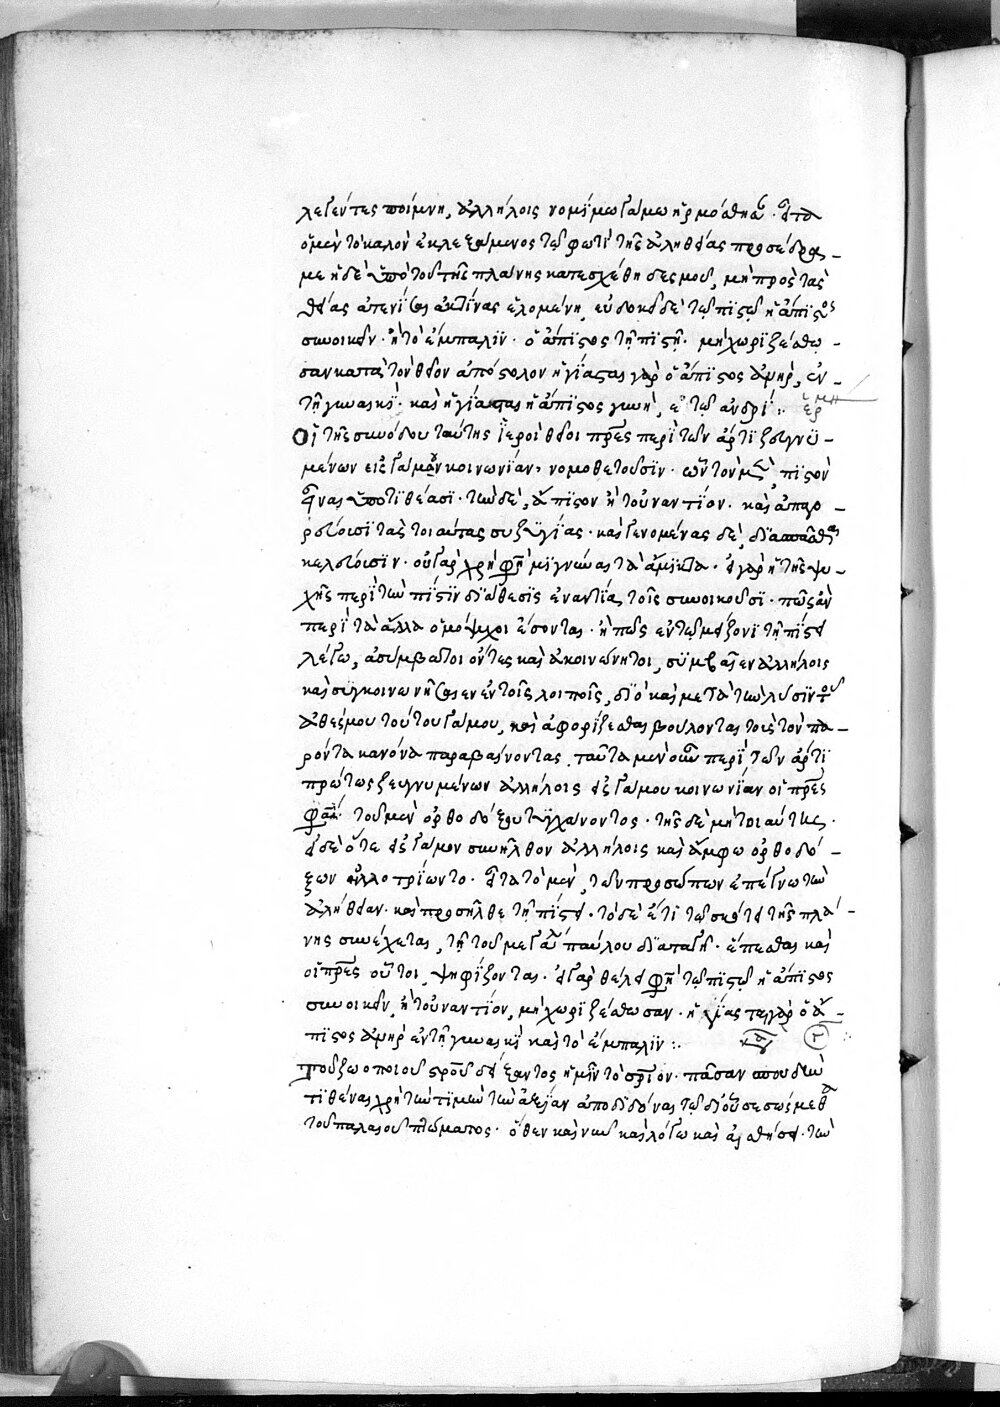 λεγέντες ποίμνη, ἀλλήλοις νομίμω γάμω ἡρμόσθησαν· εἶτα
ὁ μὲν τὸ καλὸν ἐκλεξάμενος τῶ φωτὶ τῆς ἀληθείας προσέδραμε
με ἡ δὲ ὑπὸ τοῦ τῆς πλάνης κατεσχέθη δεσμοῦ, μὴ πρὸς τὰς
θείας ἀτενίσαι ἀκτῖνας ἑλομένη, εὐδοκεῖ δὲ τῶ πιστῶ ἡ ἄπιστος
συνοικεῖν· ἢ τὸ ἔμπαλιν· ὁ ἄπιστος τῆ πιστῆ· μὴ χωριζέσθω
σαν κατὰ τὸν θεῖον ἀπόστολον ἡγίασται γὰρ ὁ ἄπιστος ἀνὴρ, ἐν
τῆ γυναικί· καὶ ἡγίασται ἡ ἄπιστος γυνὴ, ἐν τῶ ἀνδρί :· ἑρμη
Οἱ τῆς συνόδου ταύτης ἱεροὶ θεῖοι πρες περὶ τῶν ἄρτι ζευγνυ
μένων εἰς γάμου κοινωνίαν, νομοθετοῦσιν· ὧν τὸν μὲν, πιστὸν
εἶναι ὑποτιθέασι· τὴν δὲ, ἄπιστον ἢ τοὐναντίον· καὶ ἀπαγο
ρεύουσι τὰς τοιαύτας συζυγίας· καὶ γενομένας δὲ, διασπᾶσθαι
κελεύουσιν· οὐ γὰρ χρή φησι μιγνύναι τὰ ἄμικτα· εἰ γὰρ ἡ τῆς ψυ
χῆς περὶ τὴν πίστιν διάθεσις ἐναντία, τοῖς συνοικοῦσι· πῶς ἂν
περὶ τὰ ἄλλα ὁμόψυχοι ἔσονται· ἢ πῶς ἐν τῶ μείζονι τῆ πίστει
λέγω, ἀσύμβατοι ὄντες καὶ ἀκοινώνητοι, συμβαῖεν ἀλλήλοις
καὶ συγκοινωνήσαιεν ἐν τοῖς λοιποῖς, διὸ καὶ μετὰ τὴν λύσιν τοῦ
ἀθέσμου τούτου γάμου, καὶ ἀφορίζεσθαι βούλονται τοὺς τὸν πα
ρόντα κανόνα παραβαίνοντας, ταῦτα μὲν οὖν περὶ τῶν ἄρτι
πρώτως ζευγνυμένων ἀλλήλοις εἰς γάμου κοινωνίαν οἱ πρες
φασί· τοῦ μὲν ὀρθοδόξου τυγχάνοντος· τῆς δὲ μὴ τοιαύτης·
εἰ δὲ ὅτε εἰς γάμον συνῆλθον ἀλλήλοις καὶ ἄμφω ὀρθοδό
ξων ἀλλοτρίων το· εἶτα τὸ μὲν, τῶν προσώπων ἐπέγνω τὴν
ἀλήθειαν· καὶ προσῆλθε τῆ πίστει· τὸ δὲ ἔτι τῶ σκότει τῆς πλά
νης συνέχεται, τῆ τοῦ μεγάλου παύλου διαταγῆ· ἕπεσθαι καὶ
οἱ πρες οὗτοι, ψηφίζονται· εἰ γὰρ θέλει φησὶ τῶ πιστῶ ἡ ἄπιστος
συνοικεῖν, ἢ τοὐναντίον, μὴ χωριζέσθωσαν· ἡγίασται γὰρ ὁ ἄ
πιστος ἀνὴρ ἐν τῆ γυναικὶ καὶ τὸ ἔμπαλιν :·
Τοῦ ζωοποιοῦ σροῦ δείξαντος ἡμῖν τὸ σριον· πᾶσαν σπουδὴν
τιθέναι χρὴ τὴν τιμὴν τὴν ἀξίαν ἀποδιδόναι τῶ δι' οὗ σεσώσμεθα
τοῦ παλαιοῦ πτώματος· ὅθεν καὶ νῶ καὶ λόγω καὶ αἰσθήσει· τὴν